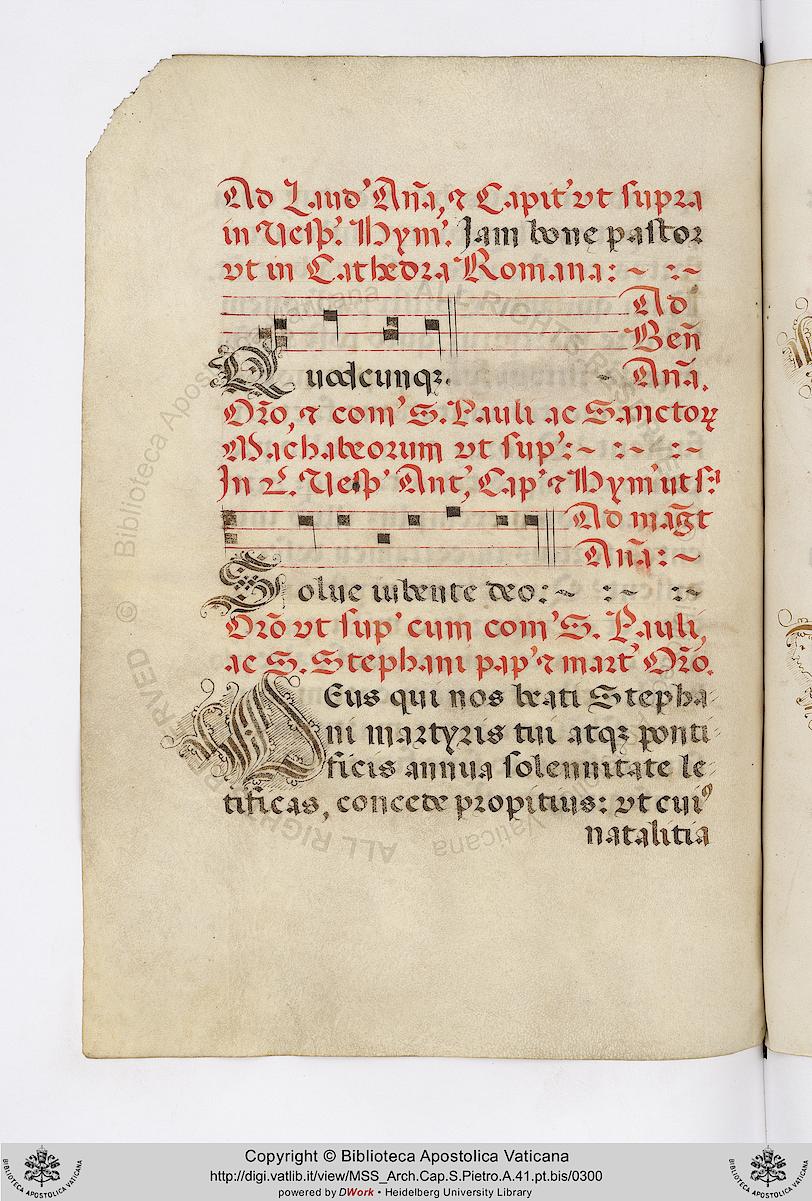 Ad Laud' Aña, ⁊ Capit' vt supra
in Vesp'. Hym'. Iam bone pastor
vt in Cathedra Romana: ~ : ~
Ad
Ben̄
Quodcunqꝫ. ~ Aña.
Oro, ⁊ com' S. Pauli ac Sanctoꝝ
Machabeorum vt sup': ~ : ~ : ~
In 2. Vesp' Ant', Cap' ⁊ Hym' ut s:
Ad mag̃t
Aña: ~
Solue iubente deo: ~ : ~ : ~
Orõ vt sup' cum com' S. Pauli,
ac S. Stephani pap' ⁊ mart' Orõ.
DEus qui nos beati Stepha-
ni martyris tui atqꝫ ponti-
ficis annua solennitate le-
tificas, concede propitius: vt cuiꝰ
natalitia
ALL RIGHTS RESERVED © Biblioteca Apostolica Vaticana
Copyright © Biblioteca Apostolica Vaticana
http://digi.vatlib.it/view/MSS_Arch.Cap.S.Pietro.A.41.pt.bis/0300
powered by DWork • Heidelberg University Library
BIBLIOTECA APOSTOLICA VATICANA
BIBLIOTECA APOSTOLICA VATICANA